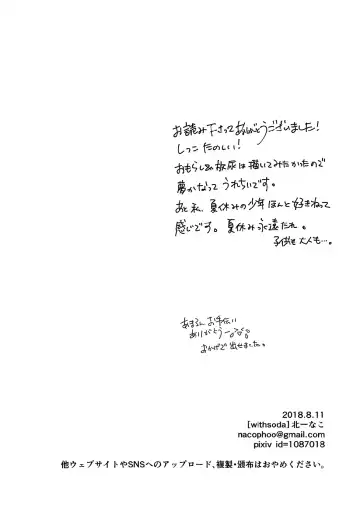 お読み下さってありがとうございました!
しっこたのしい!
おもらし&放尿は描いてみたかったので
夢かなってうれちいです。
あと私、夏休みの少年ほんと好きねって
感じです。夏休み永遠たれ。
子供も大人も…。
お手伝い
ありがとう
おかげで出せました。
2018.8.11
[withsoda] 北一なこ
nacophoo@gmail.com
pixiv id=1087018
他ウェブサイトやSNSへのアップロード、複製・頒布はおやめください。